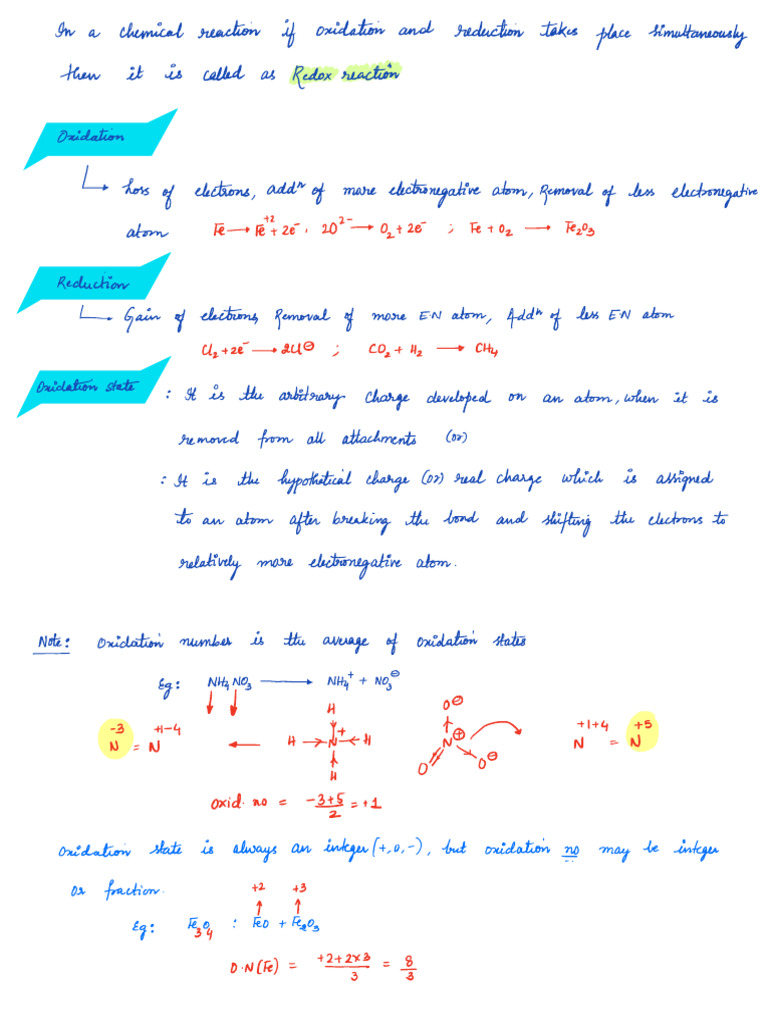 In a chemical reaction if oxidation and reduction takes place simultaneously
then it is called as Redox reaction
Oxidation
Loss of electrons, addⁿ of more electronegative atom, Removal of less electronegative
atom Fe → Fe⁺² + 2e⁻, 2O²⁻ → O₂ + 2e⁻ ; Fe + O₂ → Fe₂O₃
Reduction
Gain of electrons, Removal of more EN atom, Addⁿ of less EN atom
Cl₂ + 2e⁻ → 2Cl⊖ ; CO₂ + H₂ → CH₄
Oxidation state
: It is the arbitrary charge developed on an atom, when it is
removed from all attachments (or)
: It is the hypothetical charge (or) real charge which is assigned
to an atom after breaking the bond and shifting the electrons to
relatively more electronegative atom.
Note: Oxidation number is the average of oxidation states
Eg: NH₄NO₃ → NH₄⁺ + NO₃⊖
H O⊖
-3 +1-4 + +1+4 +5
N = N ← H → N ← H N⊕ N = N
H O O⊖
Oxid. no = -3+5/2 = +1
Oxidation state is always an integer (+,0,-), but oxidation no may be integer
or fraction.
+2 +3
Eg: Fe₃O₄ : FeO + Fe₂O₃
O.N(Fe) = +2+2×3/3 = 8/3